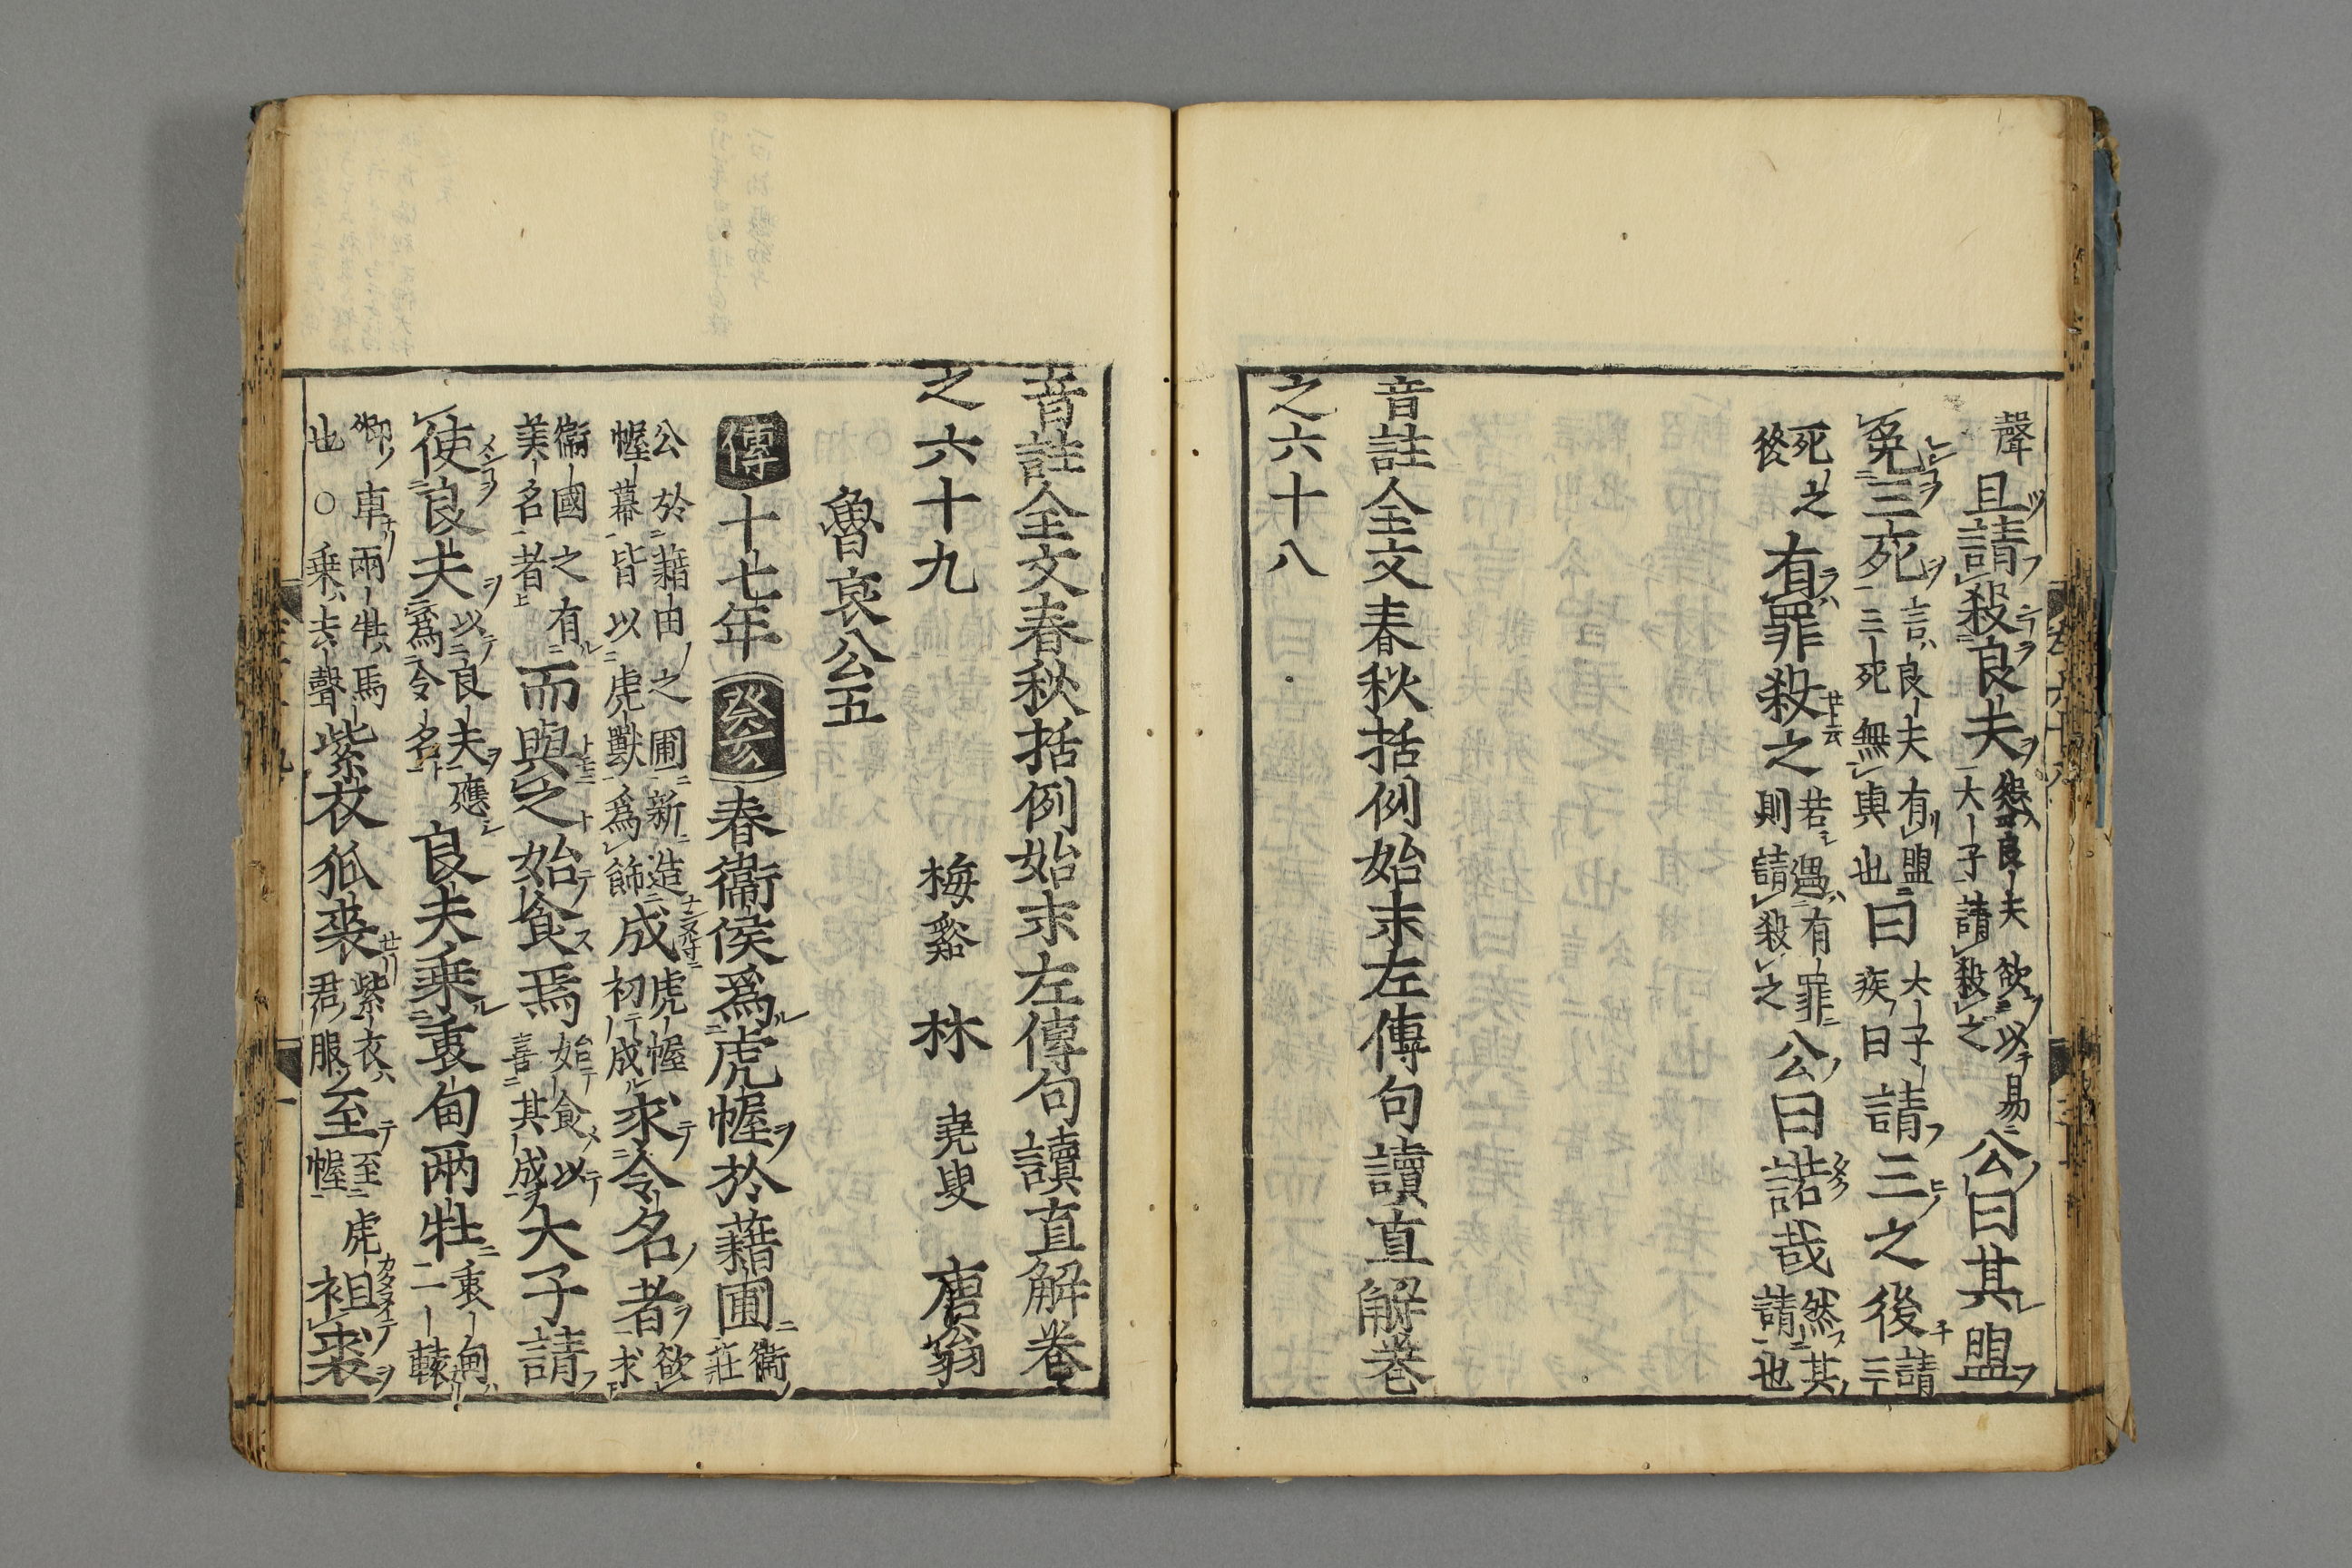 聲且請殺良夫怨良夫欲以易大子請殺之公曰其盟
免三死言良夫有盟三死無與也曰大子疾曰請三之後請三
死之後有罪殺之若遇有罪則請殺之公曰諾哉然其請也
音註全文春秋括例始末左傳句讀直解卷
之六十八
音註全文春秋括例始末左傳句讀直解卷
之六十九
梅谿 林 堯叟 唐翁
魯哀公五
傳十七年癸亥春衞侯爲虎幄於藉圃衞莊
公於藉由之圃新造幄幕皆以虎獸爲飾成虎幄初成求令名者欲求
衞國之有美名者而與之始食焉始食以喜其成大子請
使良夫以良夫應爲令名良夫乘衷甸兩牡衷甸二轅
卿車兩牡馬也○乘去聲紫衣狐裘紫衣君服至至虎幄袒裘